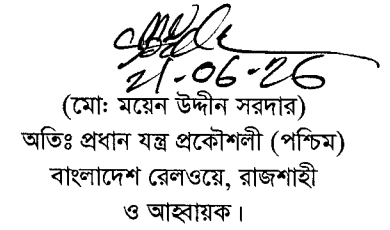 21-06-26
(মো: ময়েন উদ্দীন সরদার)
অতিঃ প্রধান যন্ত্র প্রকৌশলী (পশ্চিম)
বাংলাদেশ রেলওয়ে, রাজশাহী
ও আহ্বায়ক।